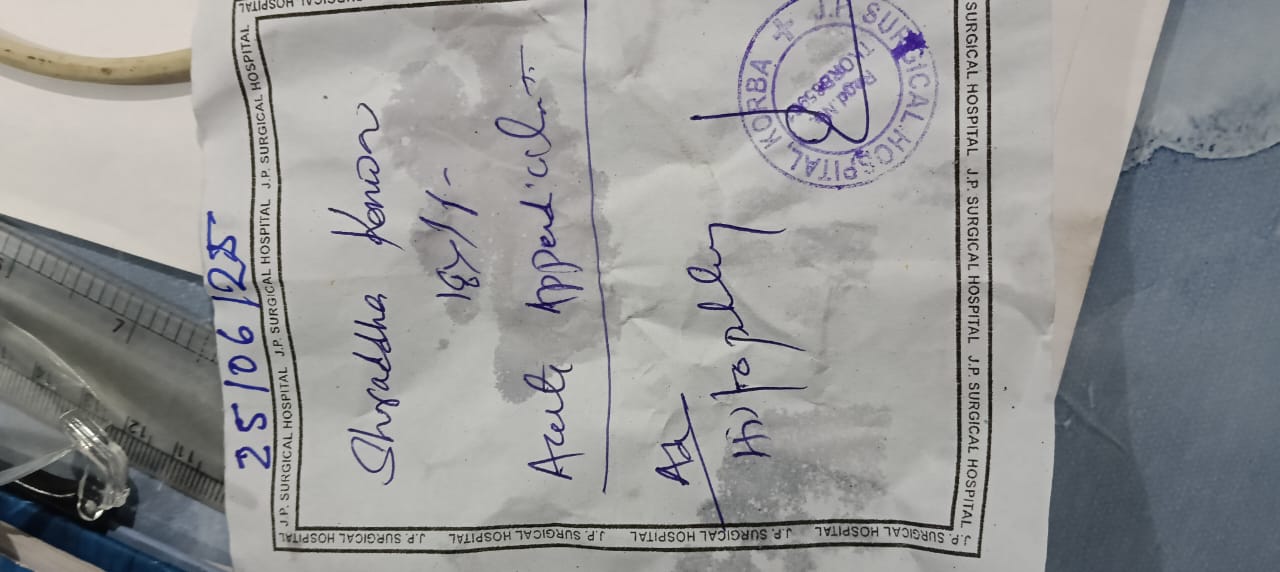 25/06/25
J.P. SURGICAL HOSPITAL J.P. SURGICAL HOSPITAL J.P. SURGICAL HOSPITAL J.P. SURGICAL HOSPITAL
Shraddha Kanwar
18y/f-
Acute Appendicitis
Ad
Histopathology
J.P. SURGICAL HOSPITAL, KORBA
Regd. No.
J.P. SURGICAL HOSPITAL J.P. SURGICAL HOSPITAL J.P. SURGICAL HOSPITAL
J.P. SURGICAL HOSPITAL J.P. SURGICAL HOSPITAL J.P. SURGICAL HOSPITAL
7
12
11